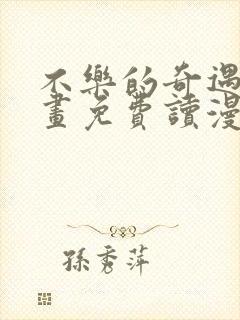 不樂的奇遇
畫免費讀漫
孫秀萍